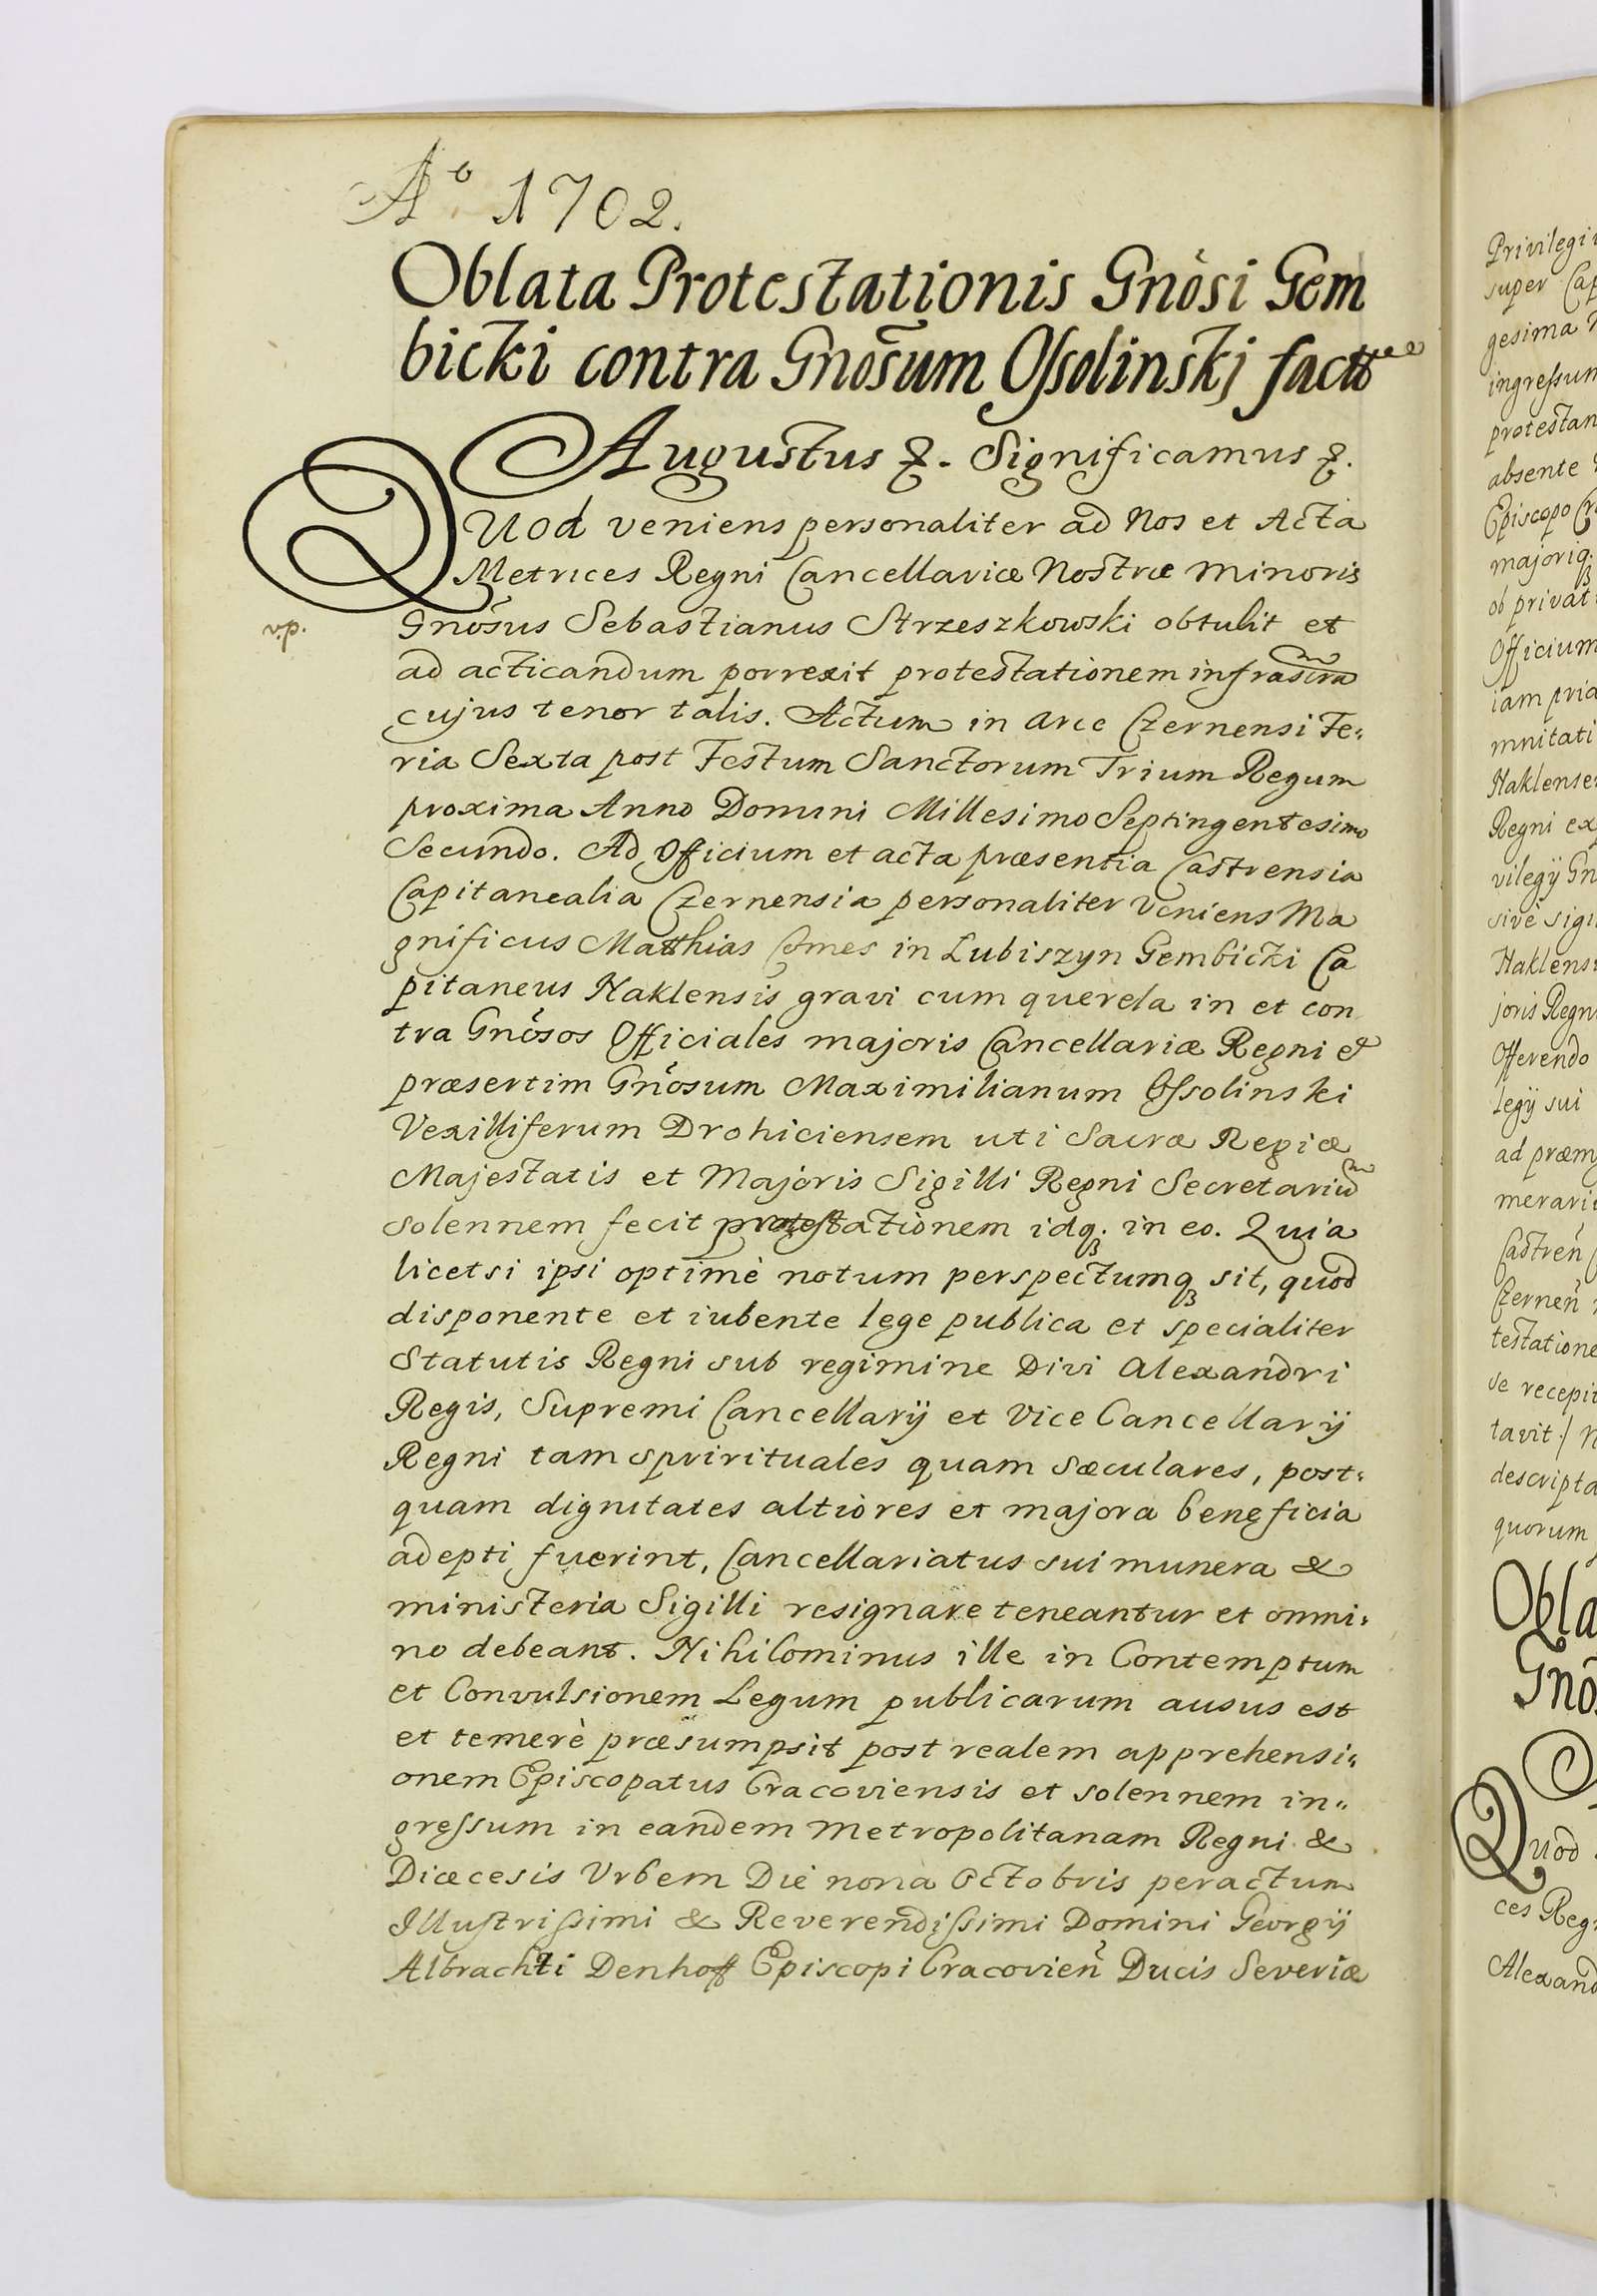 Aº 1702.
Oblata Protestationis Gnõsi Gem
bicki contra Gnõsum Ossolinskj factæ
Augustus &. Significamus &.
Quod veniens personaliter ad Nos et Acta
Metrices Regni Cancellariæ Nostræ Minoris
v.p.
Gnõsus Sebastianus Strzeszkowski obtulit et
ad acticandum porrexit protestationem infrascra
cujus tenor talis. Actum in Arce Czernensi Fe,
ria Sexta post Festum Sanctorum Trium Regum
proxima Anno Domini Millesimo Septingentesimo
Secundo. Ad Officium et acta præsentia Castrensia
Capitanealia Czernensia personaliter veniens Ma
gnificus Matthias Comes in Lubiszyn Gembicki Ca
pitaneus Naklensis gravi cum querela in et con
tra Gnõsos Officiales majoris Cancellariæ Regni &
præsertim Gnõsum Maximilianum Ossolinski
Vexilliferum Drohiciensem uti Sacræ Regiæ
Majestatis et Majoris Sigilli Regni Secretariũ
solennem fecit protestationem idqꝫ. in eo. Quia
licetsi ipsi optimè notum perspectumqꝫ sit, quod
disponente et iubente lege publica et specialiter
Statutis Regni sub regimine Divi Alexandri
Regis, Supremi Cancellarij et Vice Cancellarij
Regni tam sprirituales quam sæculares, post,
quam dignitates altiores et majora beneficia
adepti fuerint, Cancellariatus sui munera &
ministeria Sigilli resignare teneantur et omni,
no debeant. Nihilominus ille in Contemptum
et Convulsionem Legum publicarum ausus est
et temerè præsumpsit post realem apprehensi,
onem Episcopatus Cracoviensis et solennem in,,
gressum in eandem Metropolitanam Regni &
Diæcesis Urbem Die nona Octobris peractum
Illustrissimi & Reverendissimi Domini Georgij
Albrachti Denhoff Episcopi Cracovień Ducis Severiæ
super
gesima
absente
Episcopo
majoriqꝫ
Officium
iam
mnitati
Regni
vilegij
joris
Offerendo
legij sui
ad
Czerneń
se recepit
tavit
quorum
Quod
ces